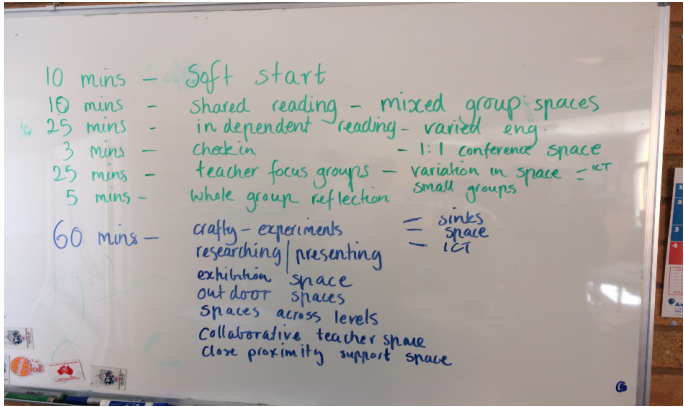 10 mins - Soft start
10 mins - shared reading - mixed group spaces
25 mins - independent reading - varied eng.
3 mins - checkin - 1:1 conference space
25 mins - teacher focus groups - variation in space - ICT
small groups
5 mins - whole group reflection
60 mins - crafty - experiments - sinks
- space
researching/presenting - ICT
exhibition space
outdoor spaces
spaces across levels
collaborative teacher space
close proximity support space